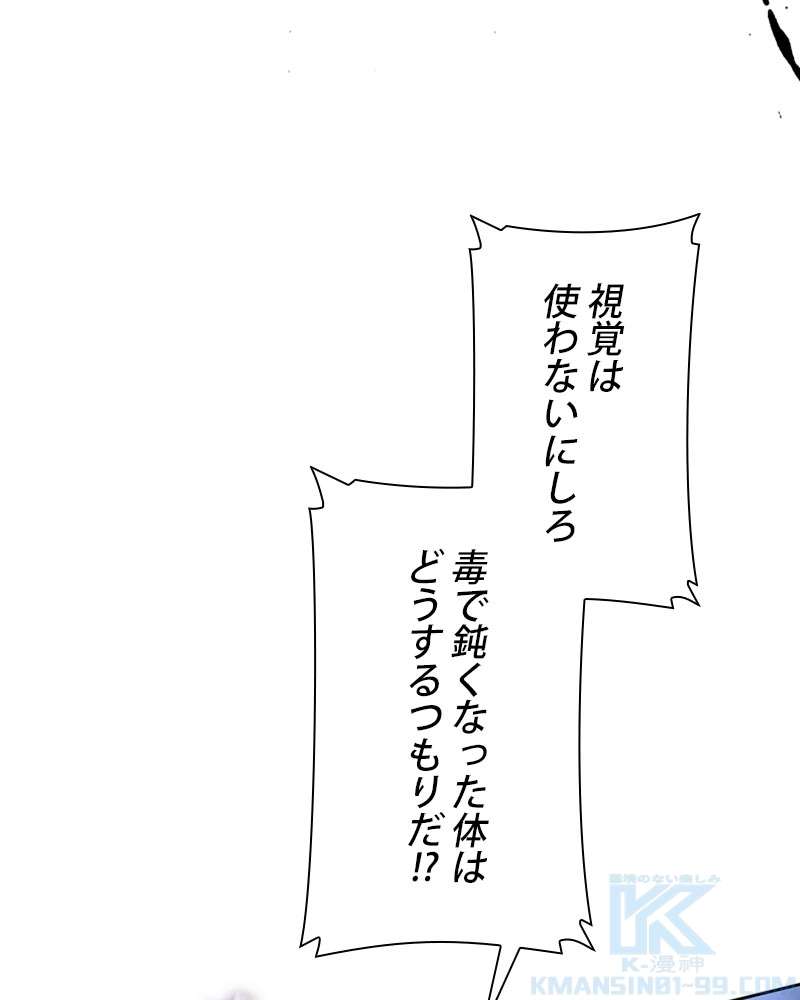 視覚は
使わないにしろ
毒で鈍くなった体は
どうするつもりだ!?
限界のない楽しみ
K-漫神
KMANSIN01-99.COM